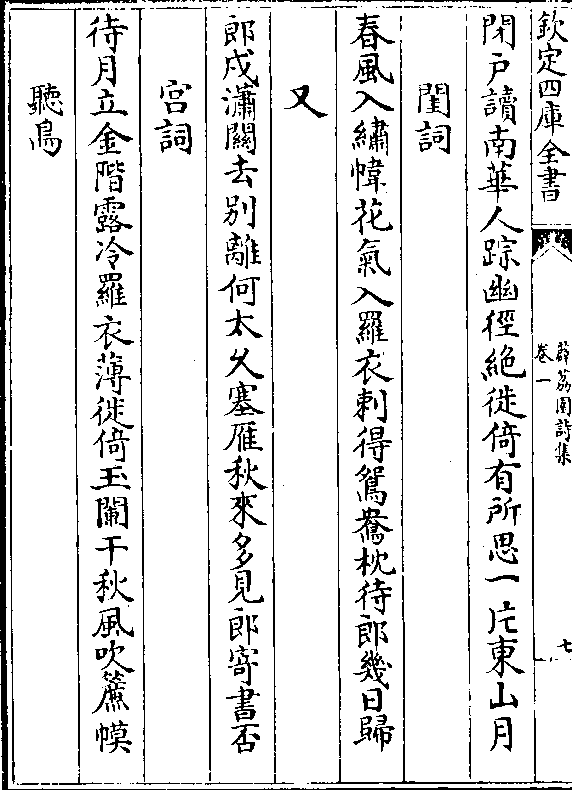 欽定四庫全書
薜荔園詩集
卷一
七
閉戸讀南華人踪幽徑絶徙倚有所思一片東山月
閨詞
春風入繡幃花氣入羅衣刺得鴛鴦枕待郎幾日歸
又
郎戍瀟關去別離何太久塞雁秋來多見郎寄書否
宫詞
待月立金階露冷羅衣薄徙倚玉闌干秋風吹簾幙
聽鳥